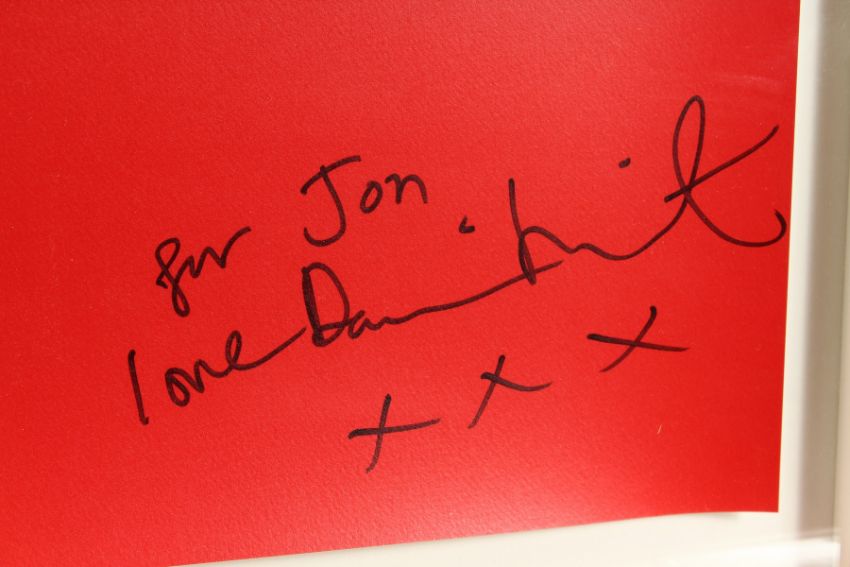 for Jon
love Damien Hirst
x x x